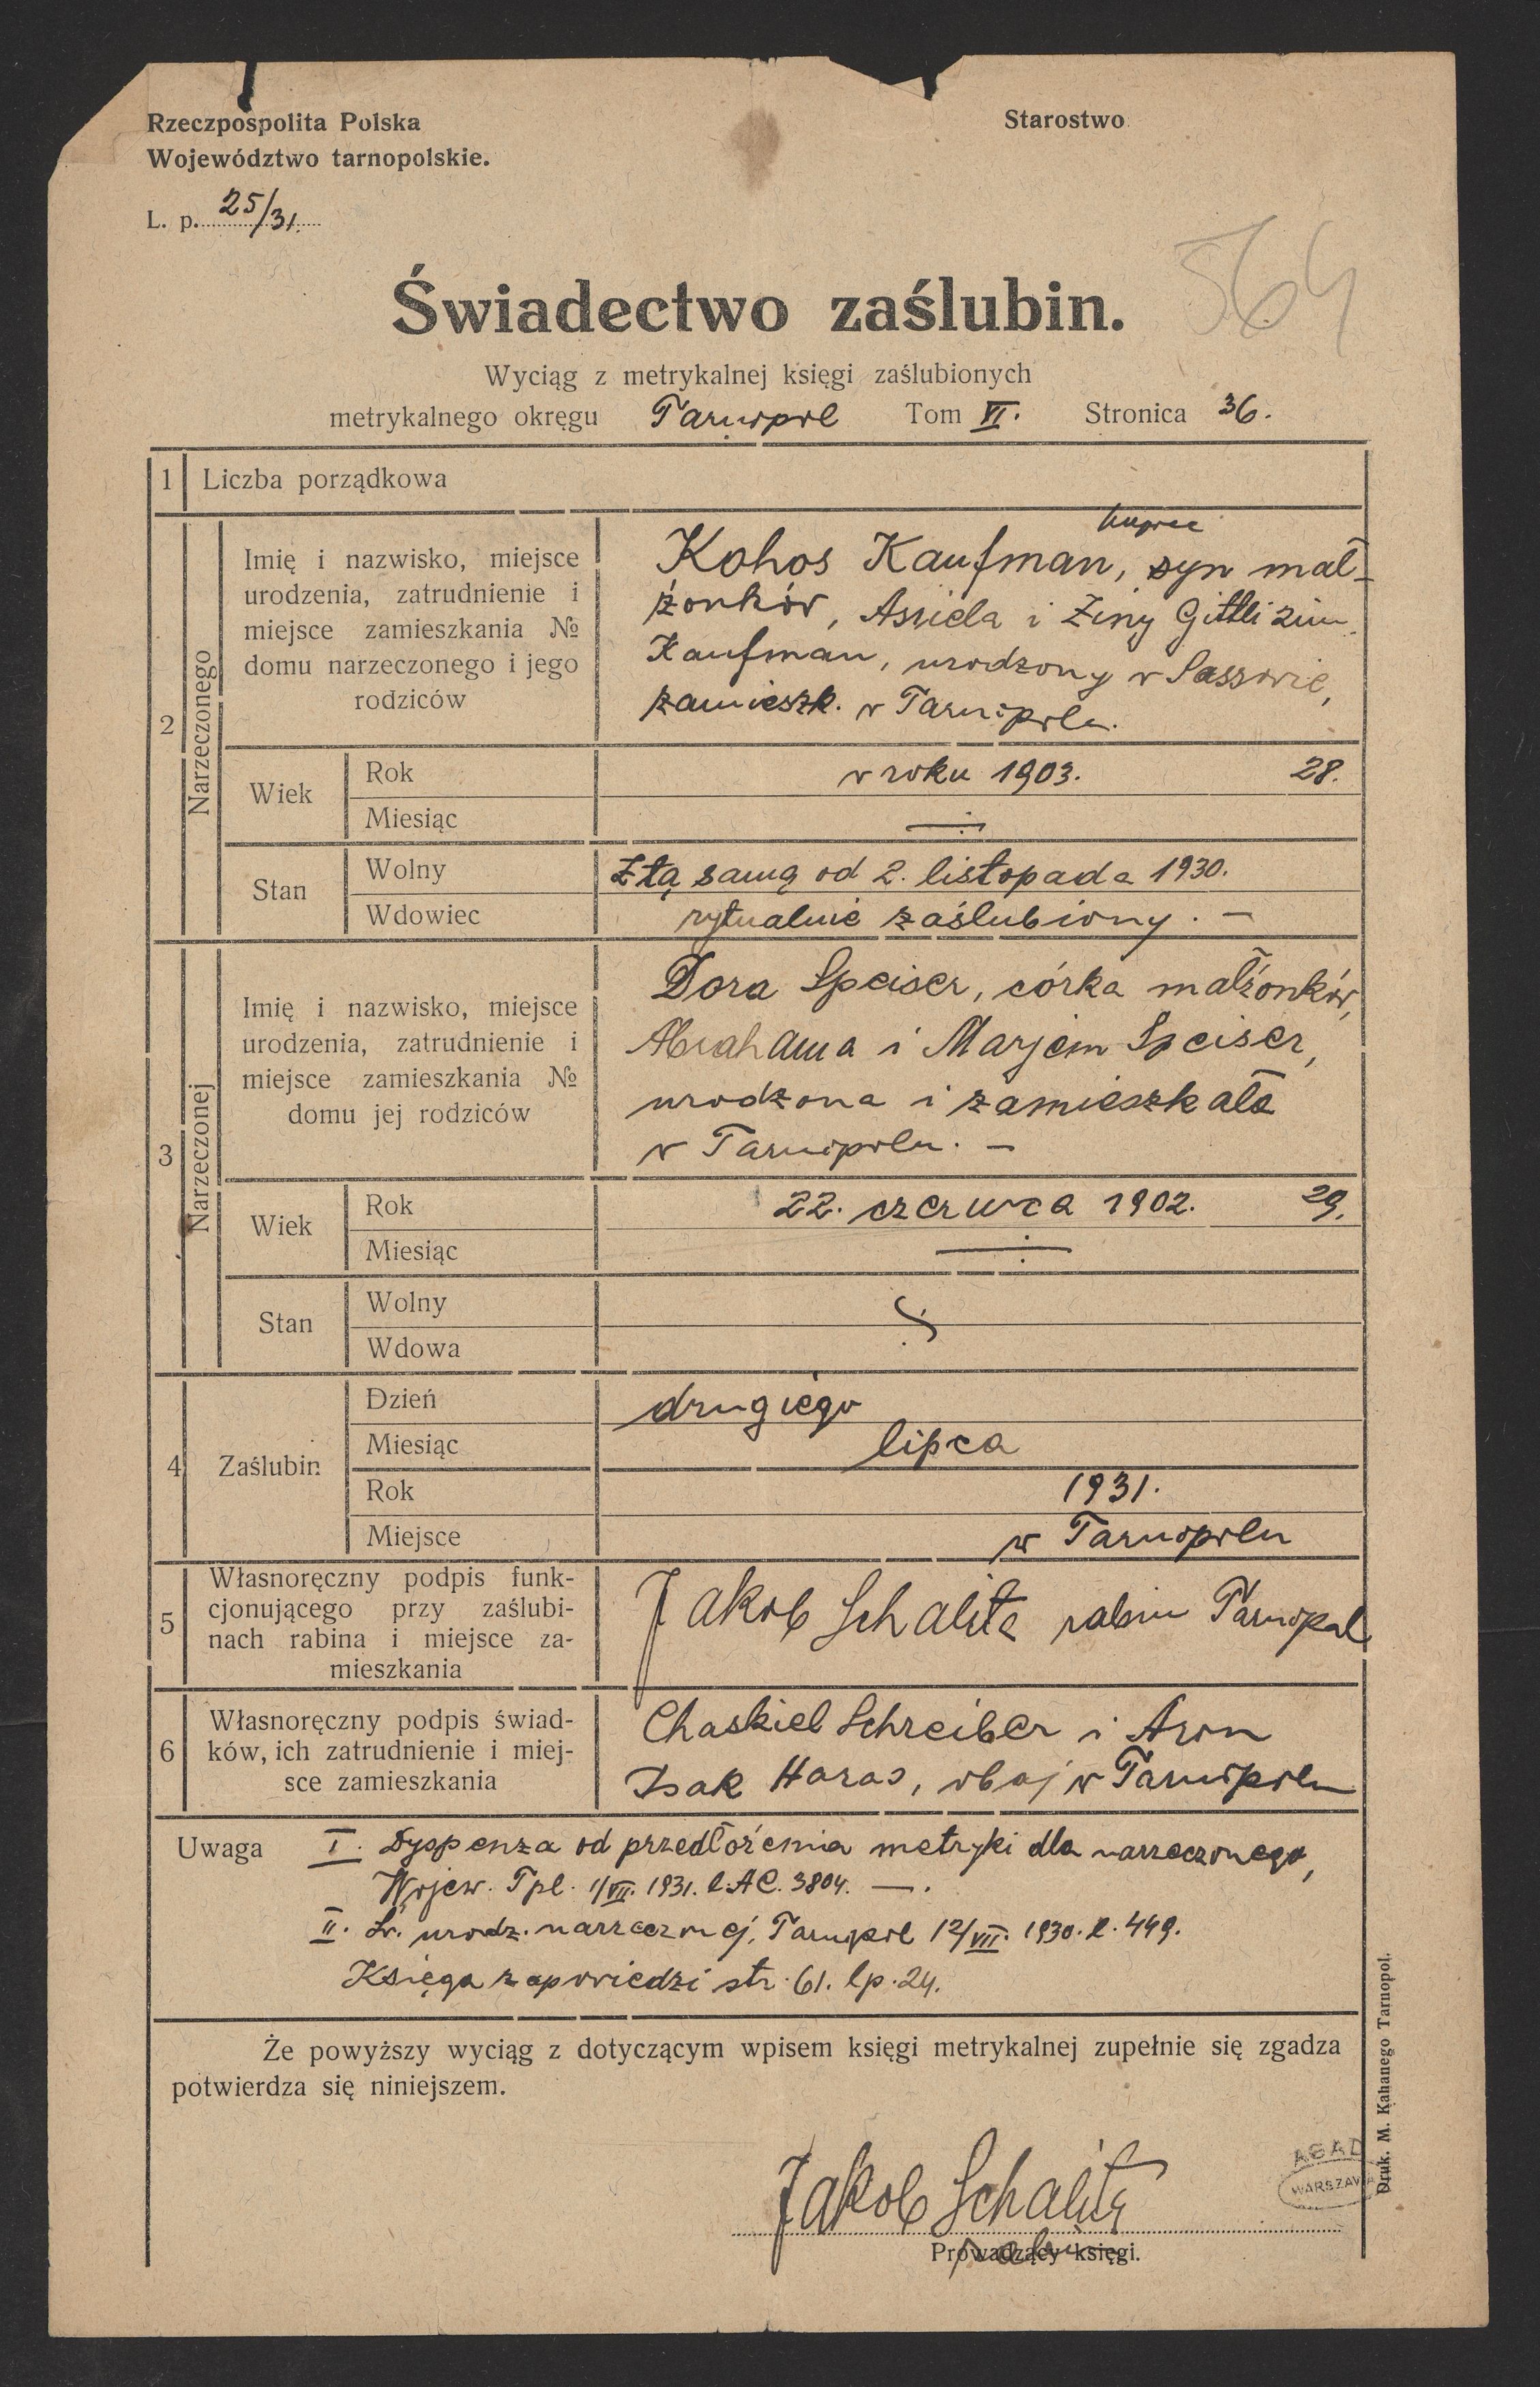 Rzeczpospolita Polska
Województwo tarnopolskie.
Starostwo
L. p. 25/31.
564
Świadectwo zaślubin.
Wyciąg z metrykalnej księgi zaślubionych
metrykalnego okręgu Tarnopol Tom VI. Stronica 36.
1 Liczba porządkowa
2 Narzeczonego
Imię i nazwisko, miejsce
urodzenia, zatrudnienie i
miejsce zamieszkania №
domu narzeczonego i jego
rodziców
kupiec
Kohos Kaufman, syn mał-
żonków, Assiela i Żiny Gittli 2im.
Kaufman, urodzony w Sassowie,
zamieszk. w Tarnopolu.
Wiek Rok w roku 1903. 28.
Miesiąc
Stan Wolny Z tą samą od 2. listopada 1930.
Wdowiec rytualnie zaślubiony. —
3 Narzeczonej
Imię i nazwisko, miejsce
urodzenia, zatrudnienie i
miejsce zamieszkania №
domu jej rodziców
Dora Speiser, córka małżonków,
Abrahama i Marjem Speiser,
urodzona i zamieszkała
w Tarnopolu. —
Wiek Rok 22. czerwca 1902. 29.
Miesiąc
Stan Wolny
Wdowa
4 Zaślubin Dzień drugiego
Miesiąc lipca
Rok 1931.
Miejsce w Tarnopolu
5 Własnoręczny podpis funk-
cjonującego przy zaślubi-
nach rabina i miejsce za-
mieszkania
Jakob Schalita rabin Tarnopol
6 Własnoręczny podpis świad-
ków, ich zatrudnienie i miej-
sce zamieszkania
Chaskiel Schreiber i Aron
Isak Haras, obaj w Tarnopolu
Uwaga I. Dyspenza od przedłożenia metryki dla narzeczonego,
Wojew. Tpl. 1/VII. 1931. l. AC. 3804. —.
II. Św. urodz. narzeczonej, Tarnopol 12/VII. 1930. l. 449.
Księga zapowiedzi str. 61. lp. 24.
Że powyższy wyciąg z dotyczącym wpisem księgi metrykalnej zupełnie się zgadza
potwierdza się niniejszem.
Jakob Schalita
rabin
Prowadzący księgi.
AGAD
WARSZAWA
Druk. M. Kahanego Tarnopol.